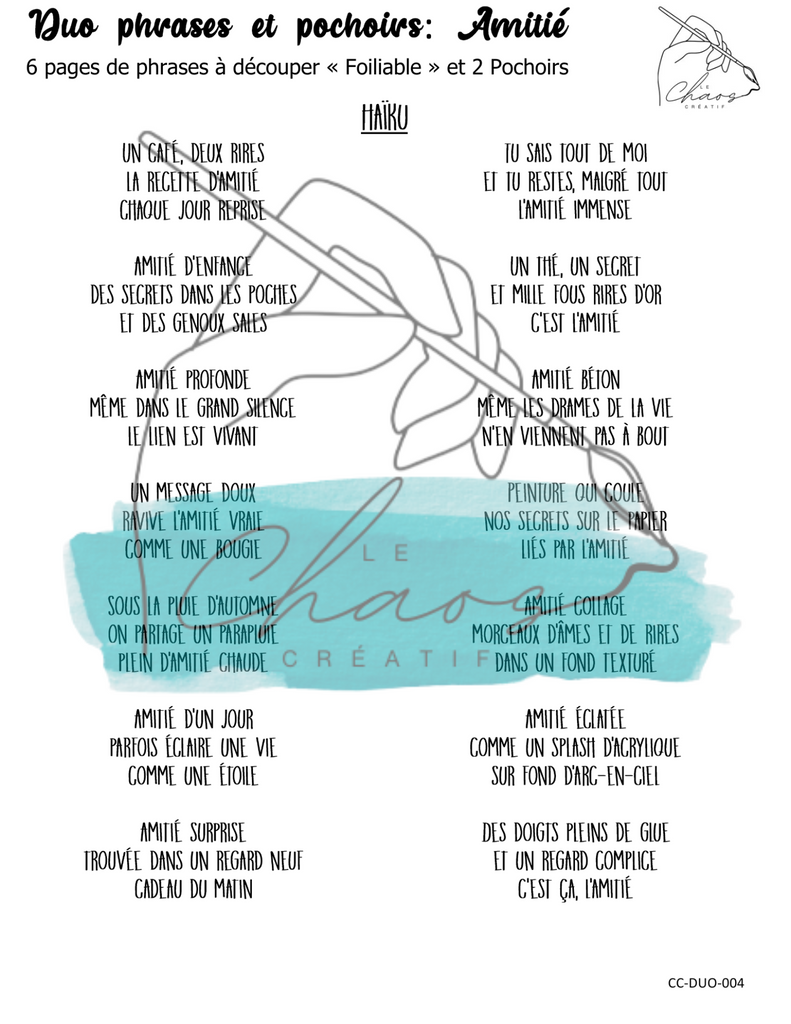 Duo phrases et pochoirs: Amitié
6 pages de phrases à découper « Foiliable » et 2 Pochoirs
LE
Chaos
CRÉATIF
HAÏKU
UN CAFÉ, DEUX RIRES
LA RECETTE D'AMITIÉ
CHAQUE JOUR REPRISE
AMITIÉ D'ENFANCE
DES SECRETS DANS LES POCHES
ET DES GENOUX SALES
AMITIÉ PROFONDE
MÊME DANS LE GRAND SILENCE
LE LIEN EST VIVANT
UN MESSAGE DOUX
RAVIVE L'AMITIÉ VRAIE
COMME UNE BOUGIE
SOUS LA PLUIE D'AUTOMNE
ON PARTAGE UN PARAPLUIE
PLEIN D'AMITIÉ CHAUDE
AMITIÉ D'UN JOUR
PARFOIS ÉCLAIRE UNE VIE
COMME UNE ÉTOILE
AMITIÉ SURPRISE
TROUVÉE DANS UN REGARD NEUF
CADEAU DU MATIN
TU SAIS TOUT DE MOI
ET TU RESTES, MALGRÉ TOUT
L'AMITIÉ IMMENSE
UN THÉ, UN SECRET
ET MILLE FOUS RIRES D'OR
C'EST L'AMITIÉ
AMITIÉ BÉTON
MÊME LES DRAMES DE LA VIE
N'EN VIENNENT PAS À BOUT
PEINTURE QUI COULE
NOS SECRETS SUR LE PAPIER
LIÉS PAR L'AMITIÉ
AMITIÉ COLLAGE
MORCEAUX D'ÂMES ET DE RIRES
DANS UN FOND TEXTURÉ
AMITIÉ ÉCLATÉE
COMME UN SPLASH D'ACRYLIQUE
SUR FOND D'ARC-EN-CIEL
DES DOIGTS PLEINS DE GLUE
ET UN REGARD COMPLICE
C'EST ÇA, L'AMITIÉ
LE
Chaos
CRÉATIF
CC-DUO-004